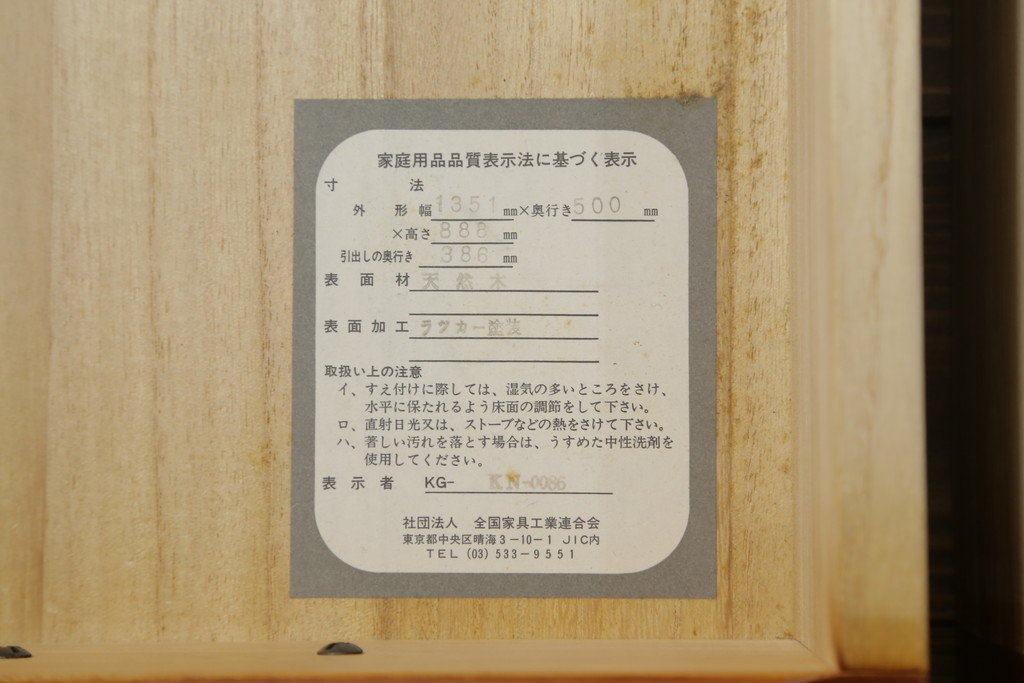 家庭用品品質表示法に基づく表示
寸法
外形 幅1351mm×奥行き500mm
×高さ888mm
引出しの奥行き386mm
表面材 天然木
表面加工 ラッカー塗装
取扱い上の注意
イ、すえ付けに際しては、湿気の多いところをさけ、
水平に保たれるよう床面の調節をして下さい。
ロ、直射日光又は、ストーブなどの熱をさけて下さい。
ハ、著しい汚れを落とす場合は、うすめた中性洗剤を
使用してください。
表示者 KG- KN-0086
社団法人 全国家具工業連合会
東京都中央区晴海3-10-1 JIC内
TEL (03) 533-9551